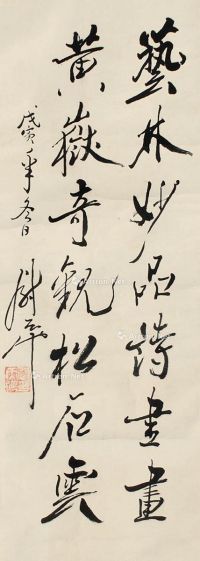 藝林妙品詩書畫
黃嶽奇觀松石雲
戊寅年冬日